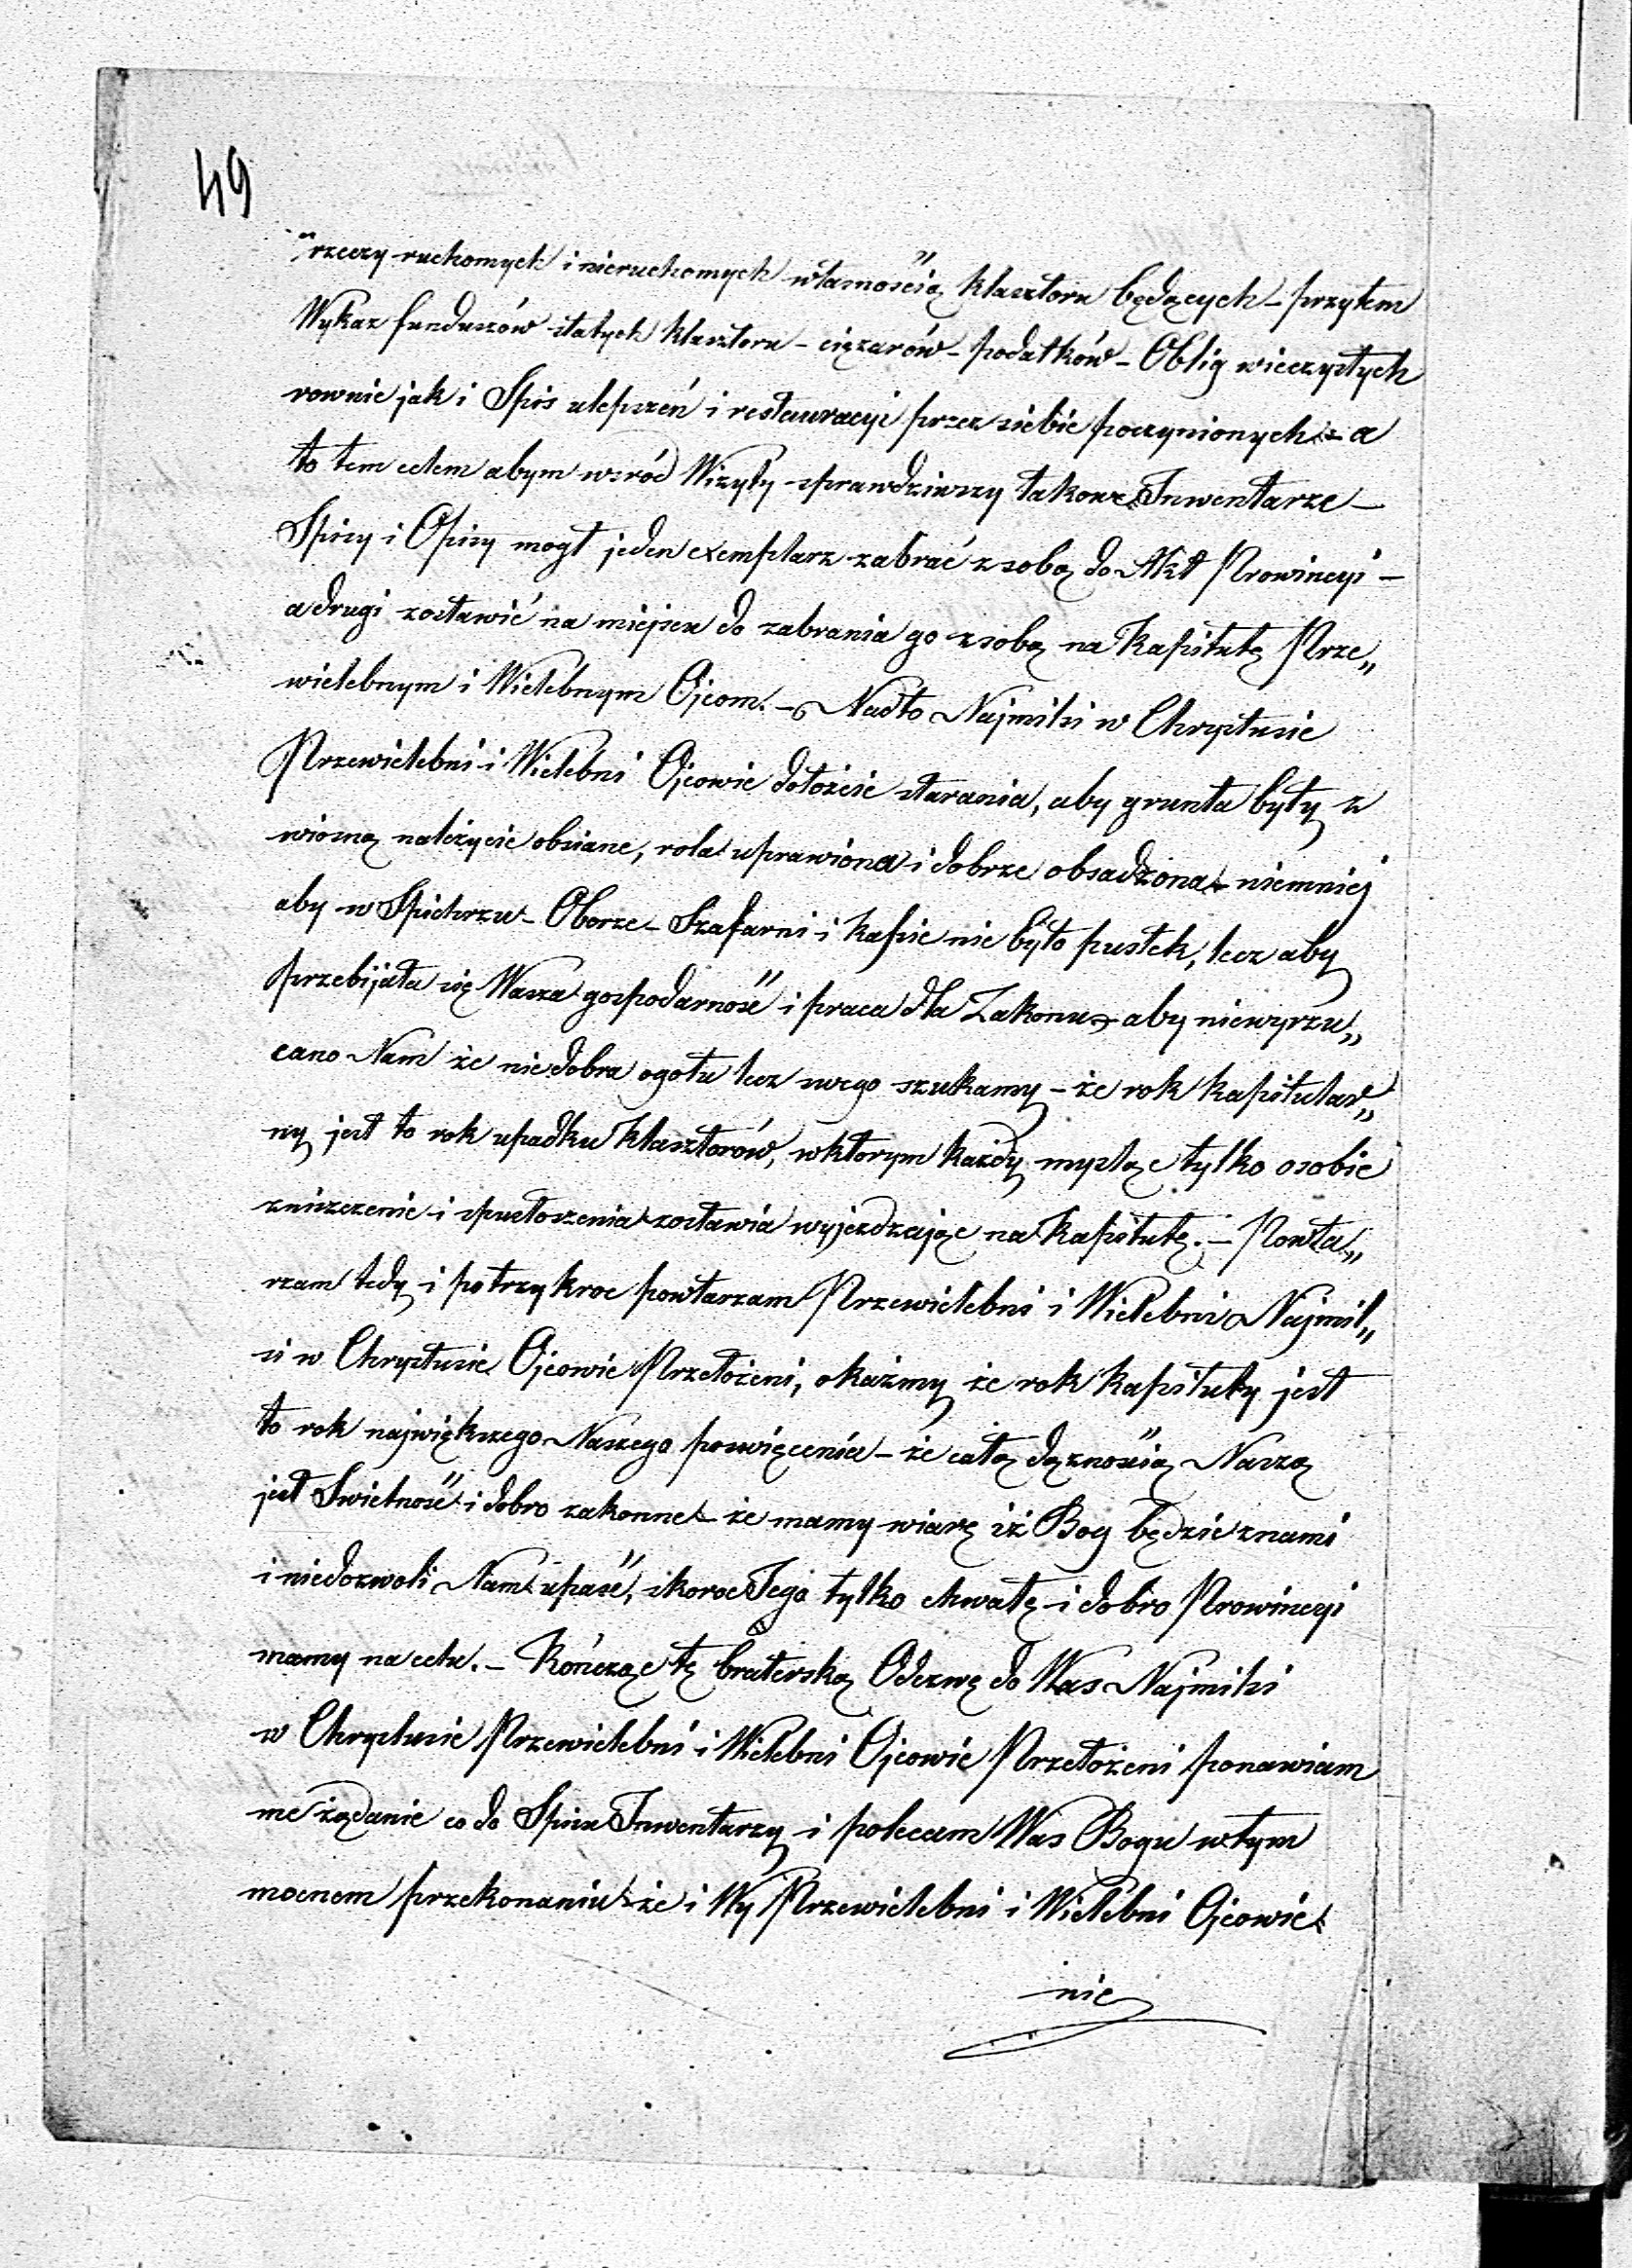 49
„rzeczy ruchomych i nieruchomych własnością klasztoru będących – przytem
Wykaz funduszów stałych klasztoru – ciężarów – podatków – Oblig wieczystych
rownie jak i Spis ulepszeń i restauracyi przez siebie poczynionych – a
to tem celem abym wsród Wizyty sprawdziwszy takowe Inwentarze –
Spisy i Opisy mogł jeden exemplarz zabrać z sobą do Akt Prowincyi –
a drugi zostawić na miejscu do zabrania go z sobą na Kapitułę Prze„
wielebnym i Wielebnym Ojcom. – Nadto Najmilsi w Chrystusie
Przewielebni i Wielebni Ojcowie dołożcie starania, aby grunta były z
wiosną należycie obsiane, rola uprawiona i dobrze obsadzona – niemniej
aby w Spichrzu – Oborze – Szafarni i kassie nie było pustek, lecz aby
przebijała się Wasza gospodarność i praca dla Zakonu – aby niewyrzu„
cano Nam że nie dobra ogołu lecz swego szukamy – że rok kapitular„
ny jest to rok upadku Klasztorów, wktorym każdy mysląc tylko osobie
zniszczenie i spustoszenia zostawia wyjezdzając na Kapitułę. – Powta„
rzam tedy i potrzykroc powtarzam Przewielebni i Wielebni Najmil„
si w Chrystusie Ojcowie Przełożeni, okażmy że rok kapituły jest
to rok największego Naszego poswięcenia – że całą dążnością Naszą
jest Swietność i dobro zakonne – że mamy wiarę iż Bog będzie znami
i niedozwoli Nam upaść, skoro Jego tylko chwałę i dobro Prowincyi
mamy na celu. – Kończąc tę braterską Odezwę do Was Najmilsi
w Chrystusie Przewielebni i Wielebni Ojcowie Przełożeni ponawiam
me żądanie co do Spisu Inwentarzy i polecam Was Bogu wtym
mocnem przekonaniu że i Wy Przewielebni i Wielebni Ojcowie
nie